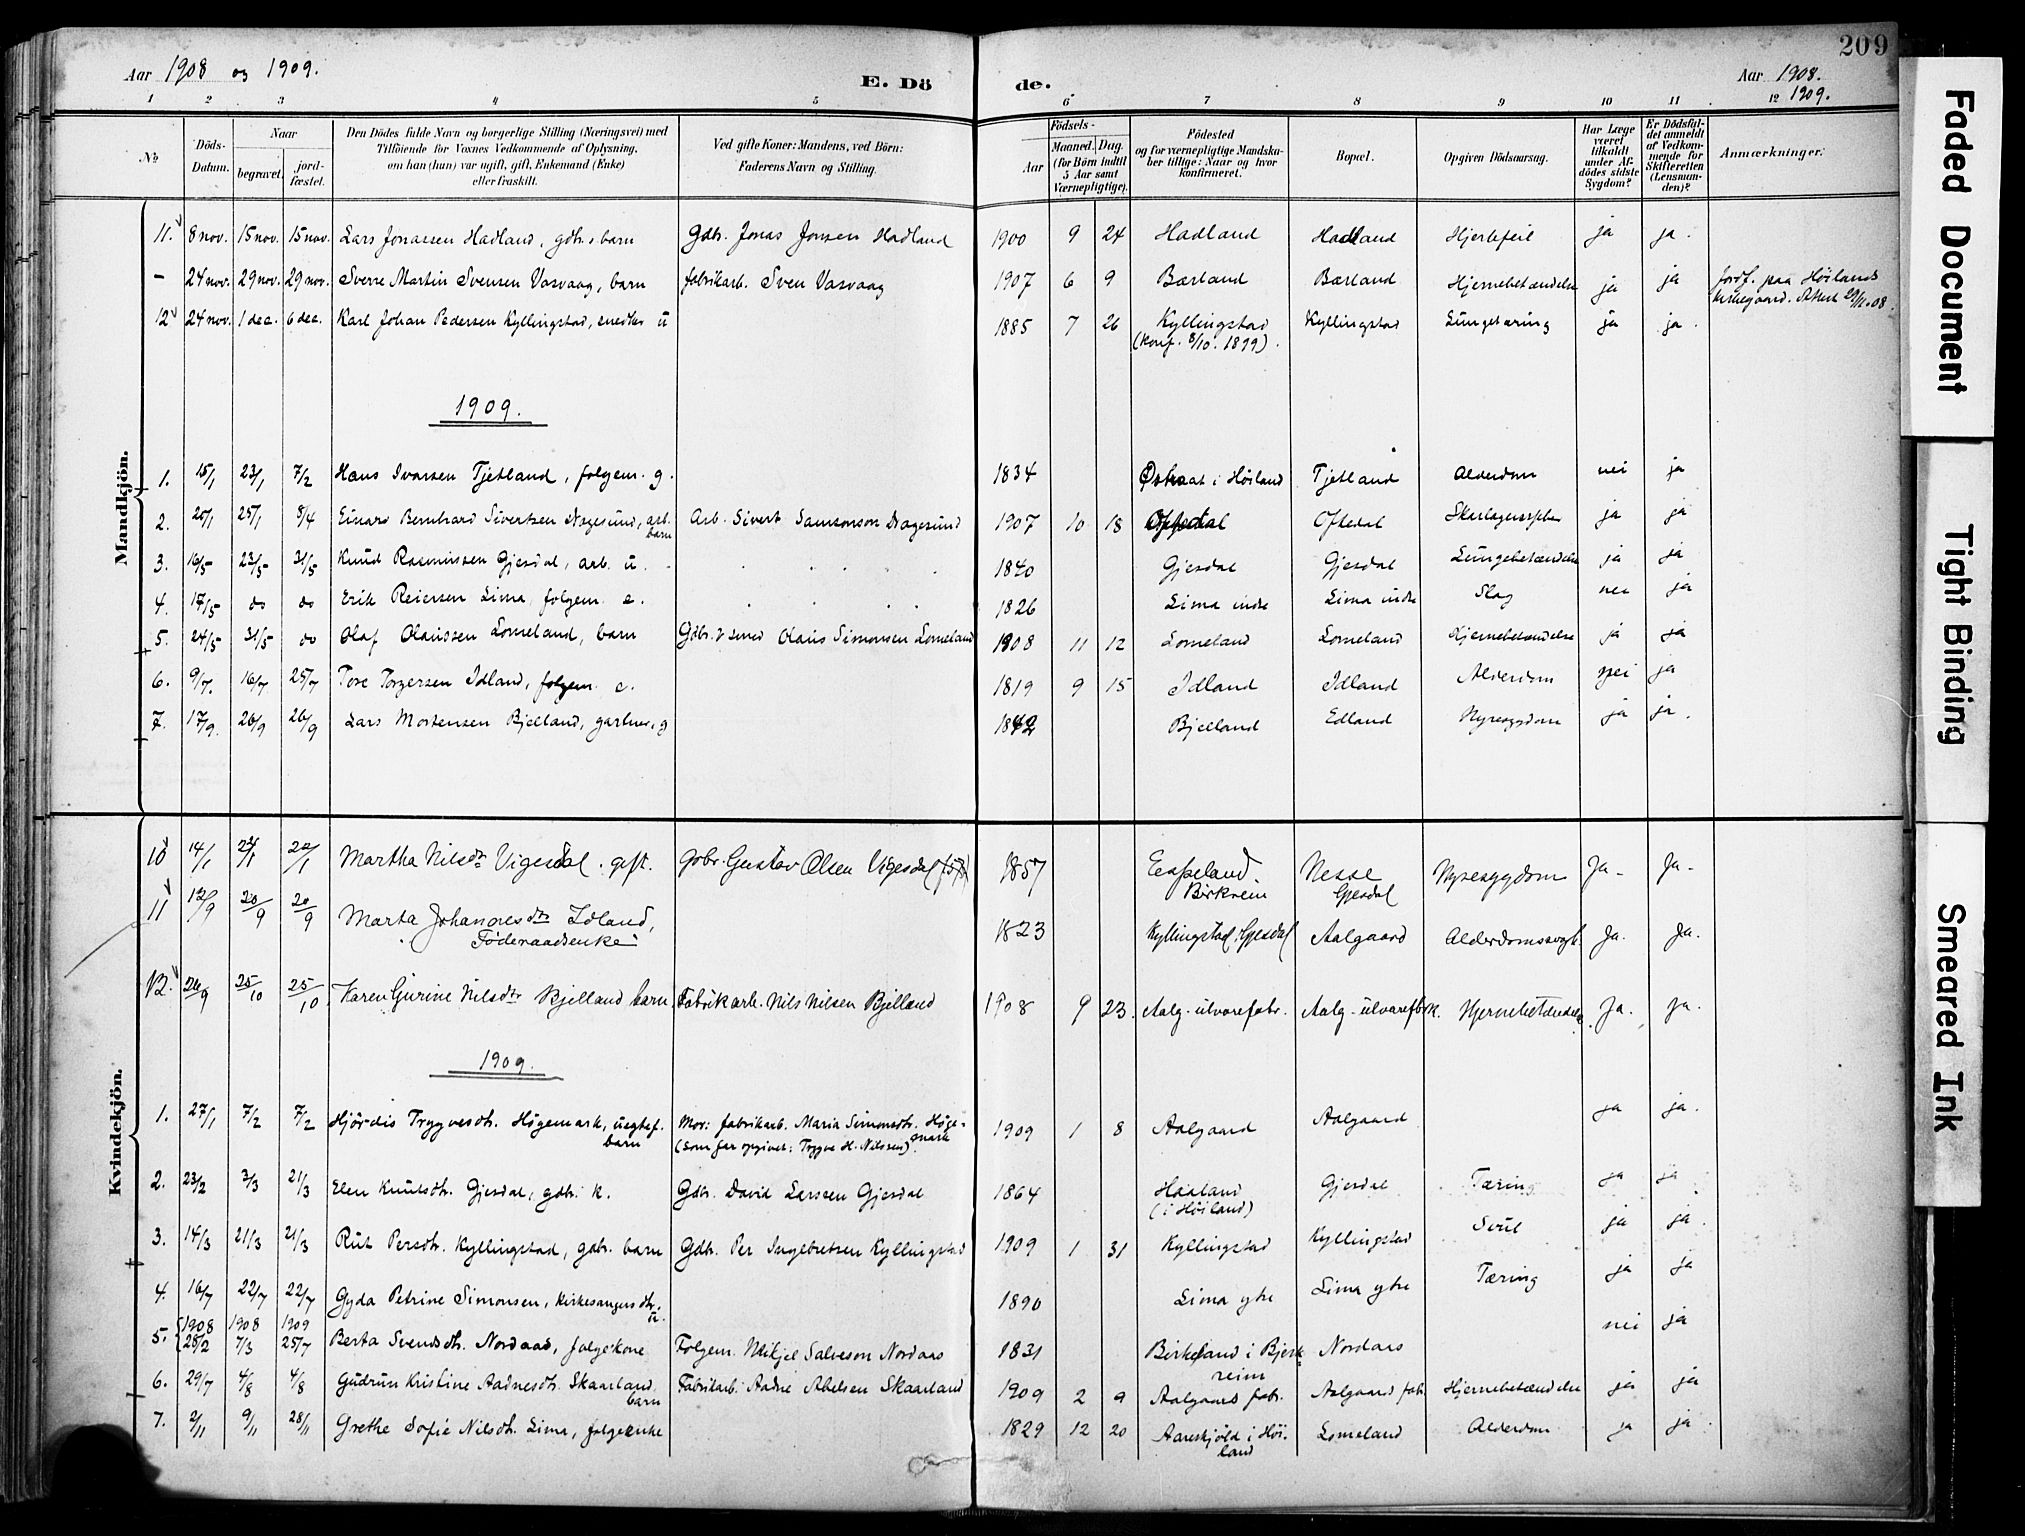 209
Aar 1908 og 1909.
E. Dö
de.
Aar 1908.
1909.
1 2 3 4 5 6 7 8 9 10 11 12
№
Döds-Datum.
Naar
begravet.
jord-fæstet.
Den Dödes fulde Navn og borgerlige Stilling (Næringsvei) med
Tilföiende for Voxnes Vedkommende af Oplysning,
om han (hun) var ugift, gift, Enkemand (Enke)
eller fraskilt.
Ved gifte Koner: Mandens, ved Börn:
Faderens Navn og Stilling.
Födsels-
Aar
Maaned. Dag.
(for Börn indtil
5 Aar samt
Værnepligtige).
Födested
og for værnepligtige Mandska-
ber tillige: Naar og hvor
konfirmeret.
Bopæl.
Opgiven Dödsaarsag.
Har Læge
været
tilkaldt
under Af-
dödes sidste
Sygdom?
Er Dödsfal-
det anmeldt
af Vedkom-
mende for
Skifteretten
(Lensman-
den)?
Anmærkninger.
Mandkjön.
11. 8 nov. 15 nov. 15 nov. Lars Jonassen Hadland, gdbr.s barn Gdbr. Jonas Jonsen Hadland 1900 9 24 Hadland Hadland Hjertefeil ja ja.
- 24 nov. 29 nov. 29 nov. Sverre Martin Svensen Vasvaag, barn fabrikarb. Sven Vasvaag 1907 6 9 Bærland Bærland Hjernebetændelse ja ja Jordf. paa Høilands
kirkegaard. 29/11.08.
12 24 nov. 1 dec. 6 dec. Karl Johan Pedersen Kyllingstad, snedker u 1885 7 26 Kyllingstad Kyllingstad Lungetæring ja ja.
(konf. 8/10. 1899).
1909.
1. 15/1 23/1 7/2 Hans Ivarsen Tjetland, folgem. g. 1834 Østraat i Høiland Tjetland Alderdom nei ja
2. 20/1 25/1 8/4 Einar Bernhard Sivertsen Dragesund, arb. Arb. Sivert Samsonson Dragesund 1907 10 18 Oftedal Oftedal ja ja
barn
3. 16/5 23/5 31/5 Knud Rasmussen Gjesdal, arb. u. 1840 Gjesdal Gjesdal Lungebetændelse ja ja
4. 17/5 do do Erik Reiersen Lima, folgem. e. 1826 Lima indre Lima indre Slag nei ja
5. 24/5 31/5 do Olaf Olaussen Lomeland, barn Gdbr. & smed Olaus Simonsen Lomeland 1908 11 12 Lomeland Lomeland Hjernebetændelse ja ja
6. 9/7. 16/7 25/7 Tore Torgersen Idland, folgem. e. 1819 9 15 Idland Idland Alderdom nei ja
7. 17/9. 26/9 26/9 Lars Mortensen Bjelland, gartner, g 1842 Bjelland Edland Nyresygdom ja ja.
Kvindekjön.
10 14/1 24/1 Martha Nilsdtr Vigesdal. gift. Gdbr. Gustav Olsen Vigesdal 1857 Espeland Nesse Nyresygdom Ja- Ja-
Birkreim Gjesdal
11 12/9 20/9 20/9 Marta Johannesdtr Idland, 1823 Kyllingstad, Gjesdal Aalgaard Ja. Ja.
Föderaadsenke
12. 26/9 25/10 25/10 Karen Gurine Nilsdtr Bjelland barn Fabrikarb. Nils Nilsen Bjelland 1908 9 23. Aalg. ulvarefabr. Aalg. ulvarefbrk. Hjernebetændelse Ja. ja.
1909.
1. 27/1 7/2 7/2 Hjørdis Trygvesdtr. Högemark, uegtef. Mor: fabrikarb. Maria Simonsdtr. Höge- 1909 1 8 Aalgaard Aalgaard ja ja.
barn (som far opgivet: Trygve H. Nilssen). mark
2. 23/2 3/3 21/3 Elen Knutsdtr. Gjesdal, gdbr. k. Gdbr. David Larssen Gjesdal 1864 Haaland Gjesdal Tæring ja ja
(i Höiland)
3. 14/3 21/3 21/3 Rut Persdtr. Kyllingstad, gdbr. barn Gdbr. Per Ingebretsen Kyllingstad 1909 1 31 Kyllingstad Kyllingstad ja ja.
4. 16/7 22/7 22/7 Gyda Petrine Simonsen, kirkesangersdtr. 1890 Lima ytre Lima ytre Tæring ja ja
u.
1908 1908 1909
5. 28/2 7/3 25/7 Berta Svendsdtr. Nordaas, folgekone Folgem. Mikjel Salveson Nordaas 1831 Birkeland i Bjerk- Nordaas nei ja
reim
6. 29/7 4/8 4/8 Gudrun Kristine Aadnesdtr. Skaarland Fabrikarb. Aadne Abelsen Skaarland 1909 2 9 Aalgaard fabr. Aalgaard fabr Hjernebetændelse ja ja
barn
7. 2/11 9/11 28/11 Grethe Sofie Nilsdtr. Lima, folgeenke 1829 12 20 Aareskjöld i Höi- Lomeland Alderdom ja ja.
land
Faded Document
Tight Binding
Smeared Ink